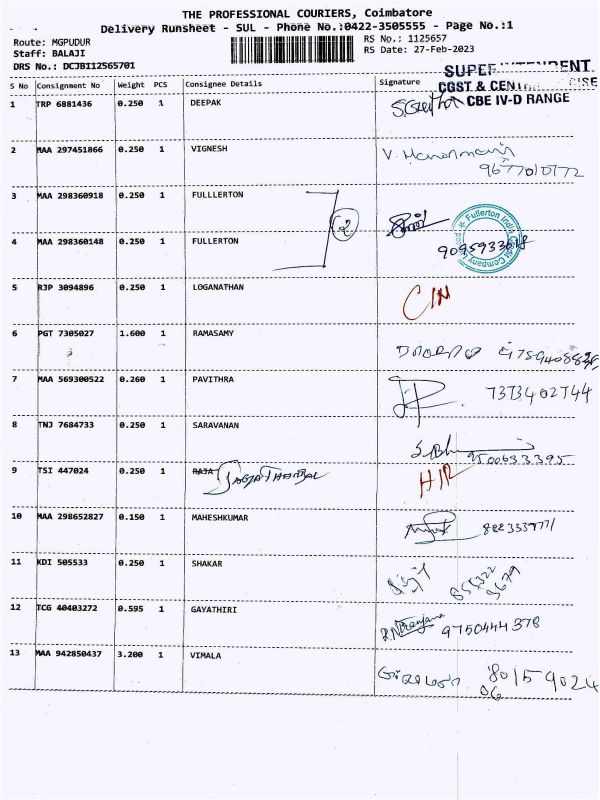 THE PROFESSIONAL COURIERS, Coimbatore
Delivery Runsheet - SUL - Phone No.:0422-3505555 - Page No.:1
Route: MGPUDUR RS No.: 1125657
Staff: BALAJI RS Date: 27-Feb-2023
DRS No.: DCJB112565701
SUPERINTENDENT
CGST & CENTRAL EXCISE
CBE IV-D RANGE
S No Consignment No Weight PCS Consignee Details Signature
1 TRP 6881436 0.250 1 DEEPAK S.Geetha
2 MAA 297451866 0.250 1 VIGNESH V. Manonmani
9677010772
3 MAA 298360918 0.250 1 FULLLERTON
2
Fullerton India
4 MAA 298360148 0.250 1 FULLERTON
5 RJP 3094896 0.250 1 LOGANATHAN
6 PGT 7305027 1.600 1 RAMASAMY
7 MAA 569300522 0.260 1 PAVITHRA 7373402744
8 TNJ 7684733 0.250 1 SARAVANAN
9500633395
9 TSI 447024 0.250 1 RAJA
10 MAA 298652827 0.150 1 MAHESHKUMAR
11 KDI 505533 0.250 1 SHAKAR
12 TCG 40403272 0.595 1 GAYATHIRI 9750444378
13 MAA 942850437 3.200 1 VIMALA 80159024
06